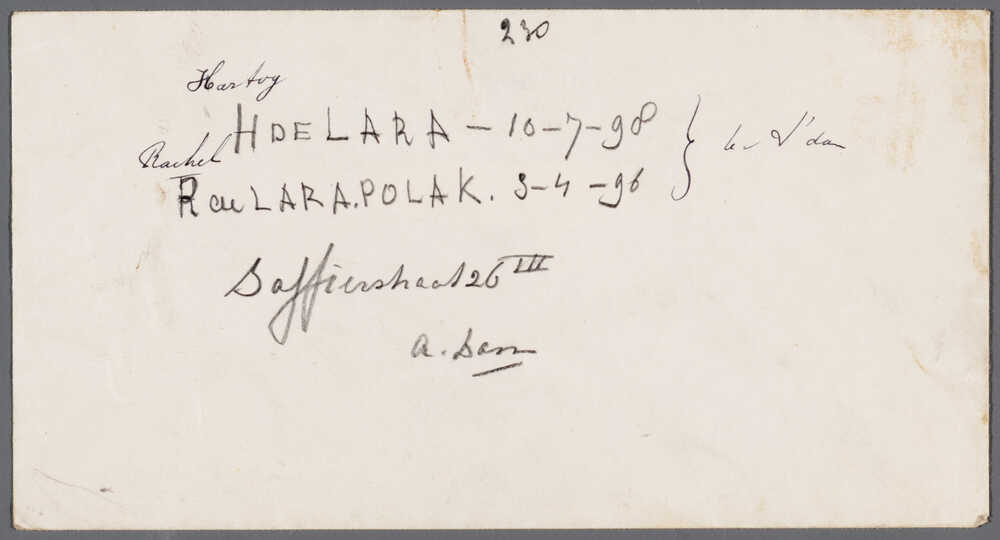 230
Hartog
H DE LARA - 10-7-98 } te A'dam
Rachel
R de LARA.POLAK. 3-4-96
Saffierstraat 26 III
A. Dam